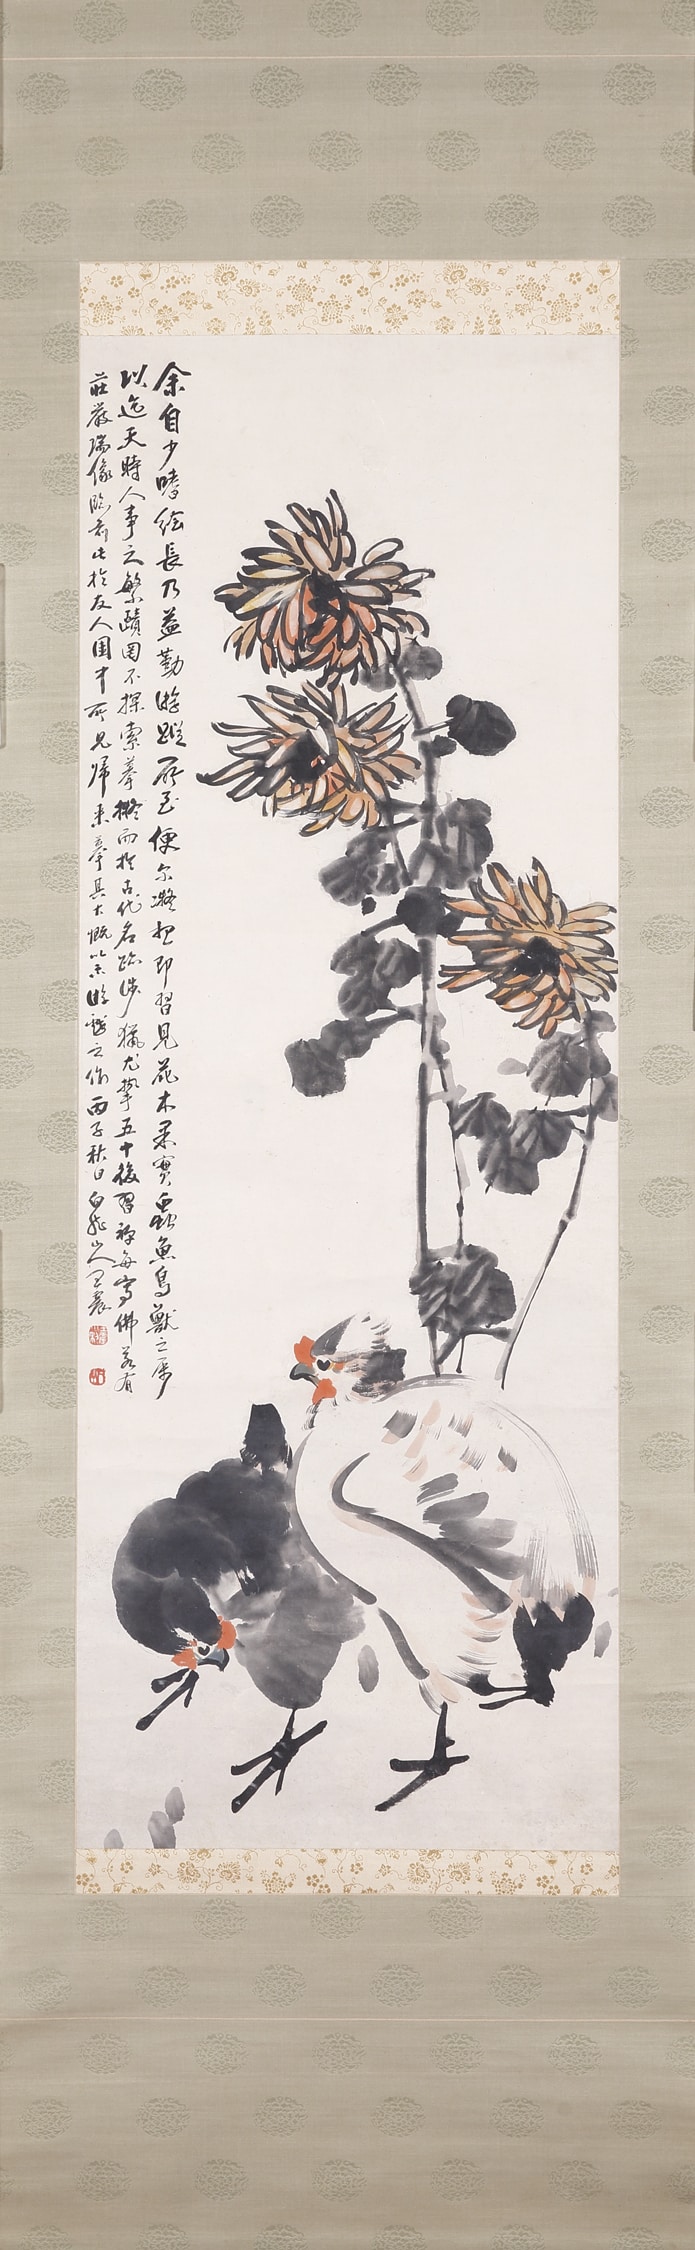 余自少嗜绘長乃益勤游蹤所至便尔凝想即習見花木果實蟲魚鳥獸之屬
以迄天時人事之繁賾罔不探索摹擬而於古代名跡涉獵尤摯五十後習禅每寫佛若有
莊嚴瑞像臨前此於友人園中所見歸來摹其大概以余游戲之作丙子秋日白龍山人王震